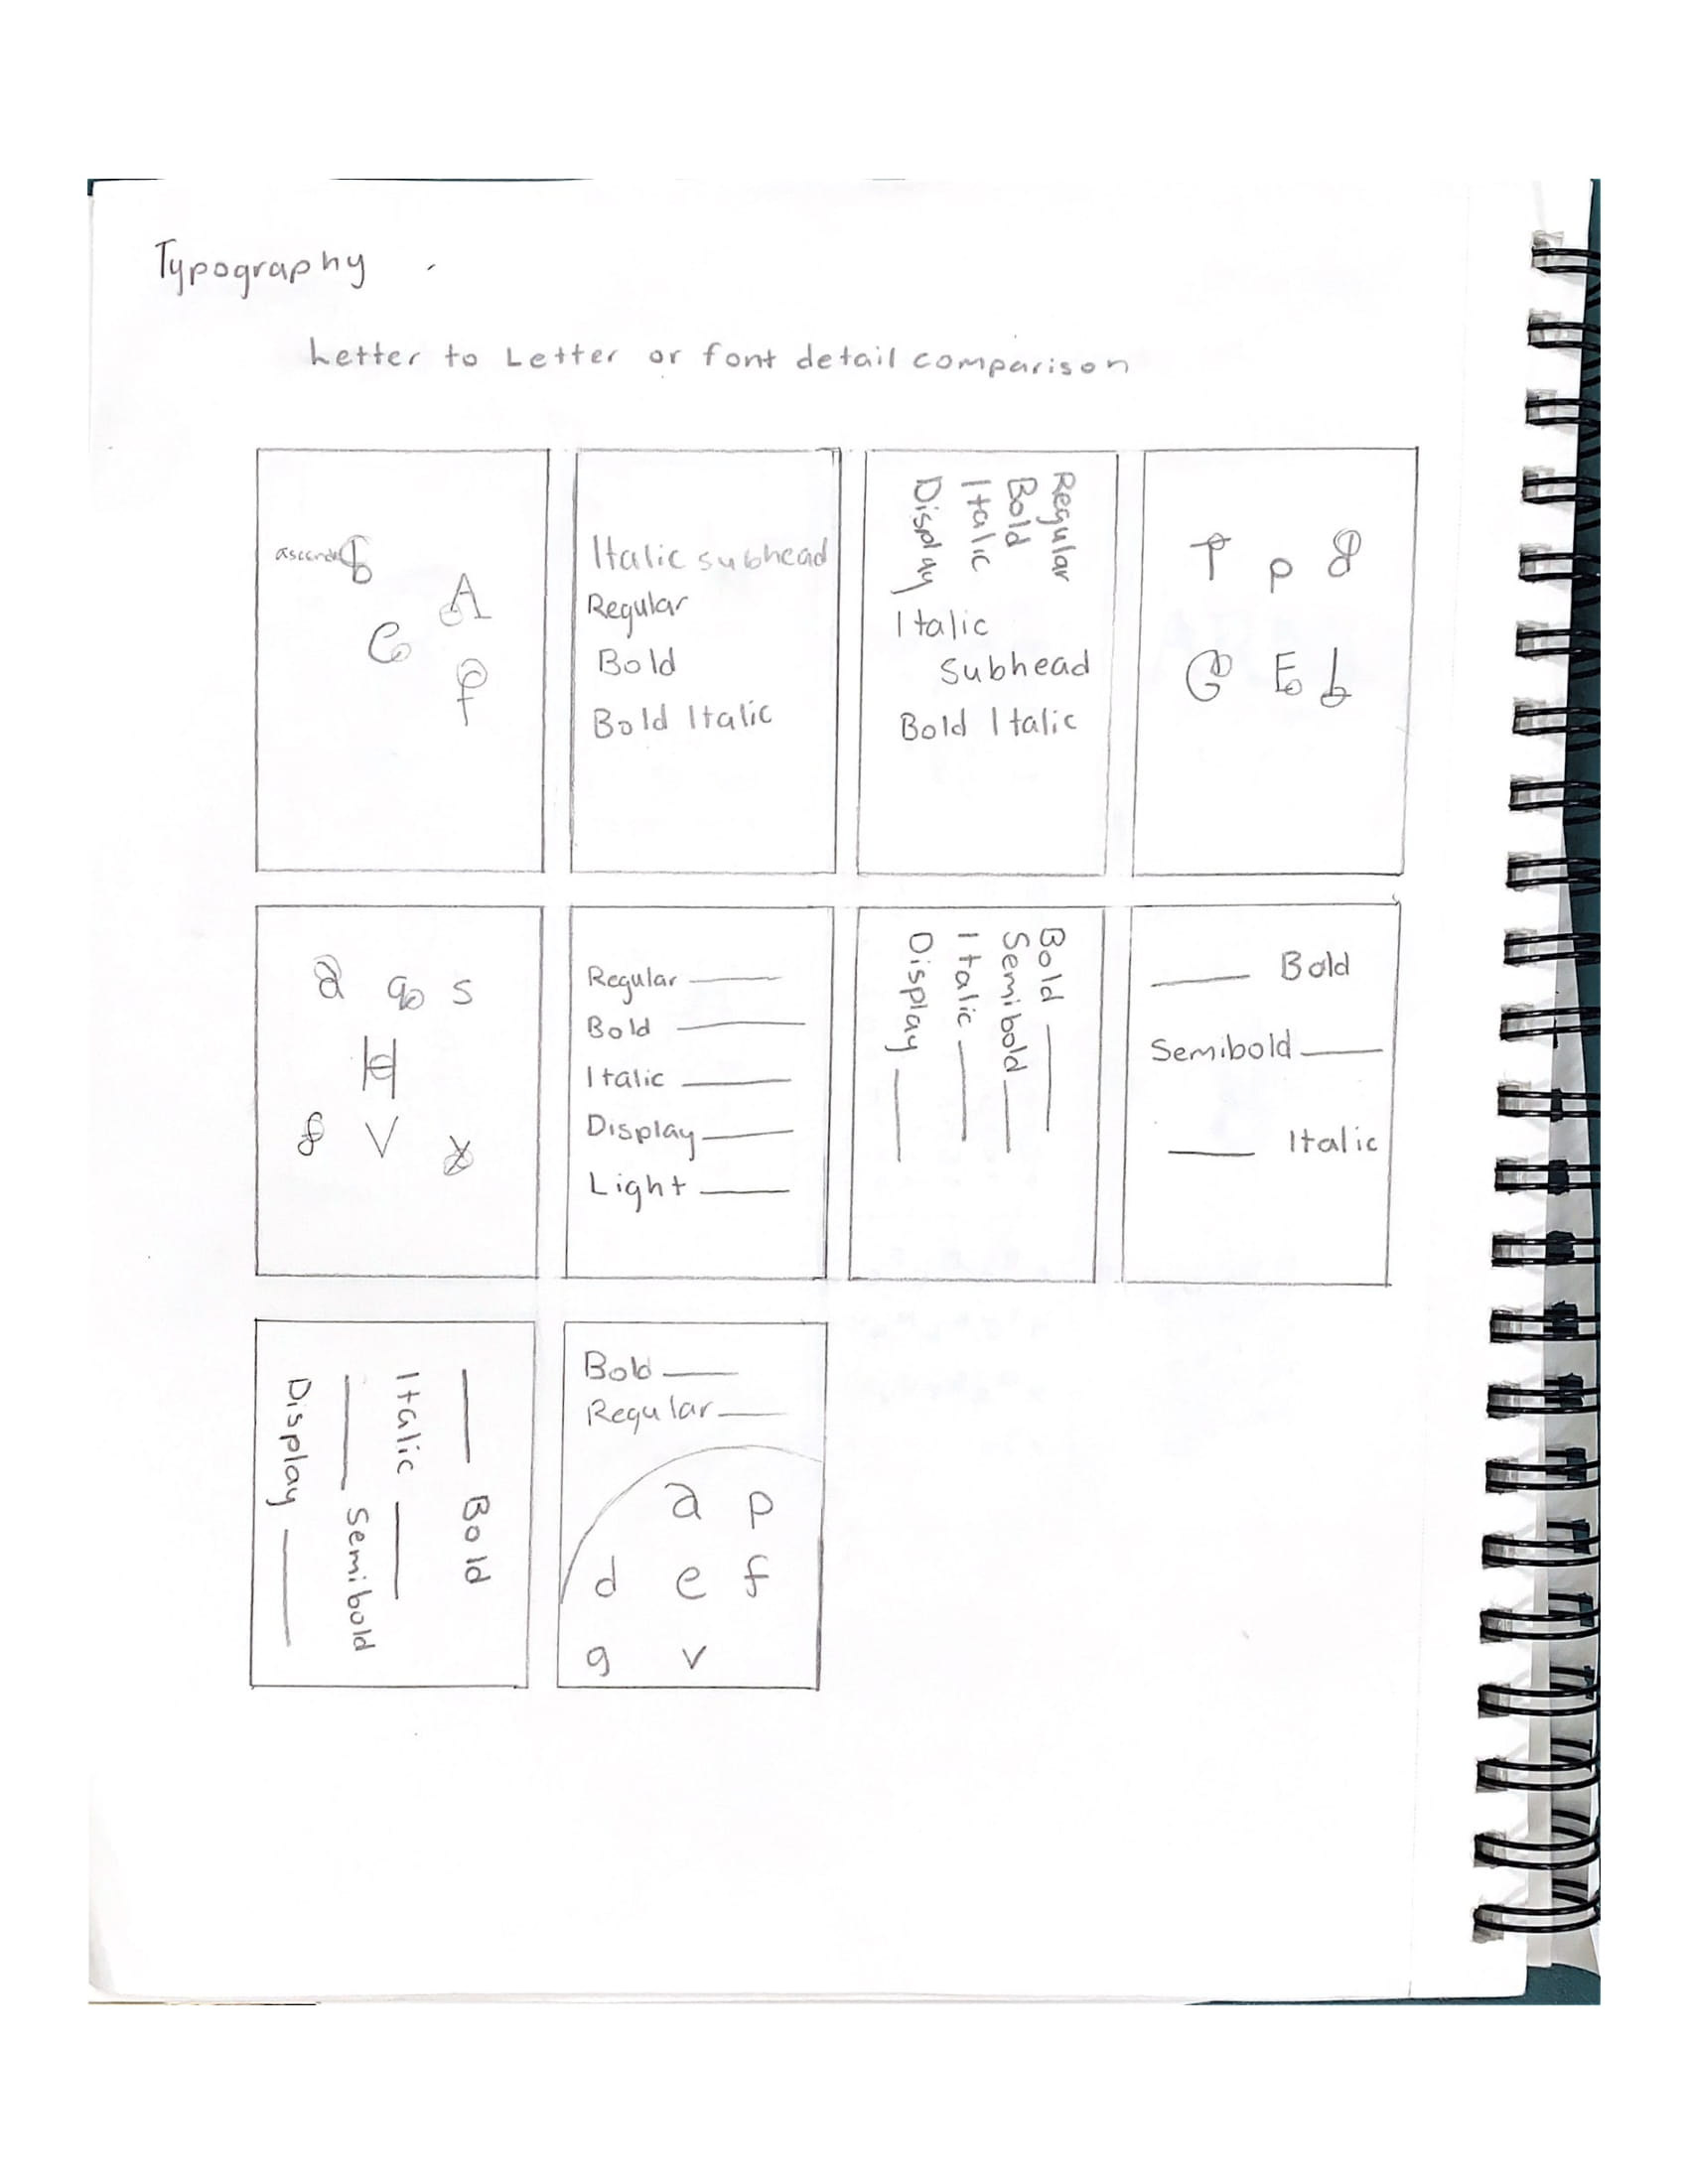 Typography
Letter to Letter or font detail comparison
ascender b
A
C
f
Italic subhead
Regular
Bold
Bold Italic
Regular
Bold
Italic
Display
Italic
Subhead
Bold Italic
T p 8
G E b
a q s
H
8 V x
Regular
Bold
Italic
Display
Light
Bold
Semibold
Italic
Display
Bold
Semibold
Italic
Bold
Italic
Semibold
Display
Bold
Regular
a p
d e f
g v